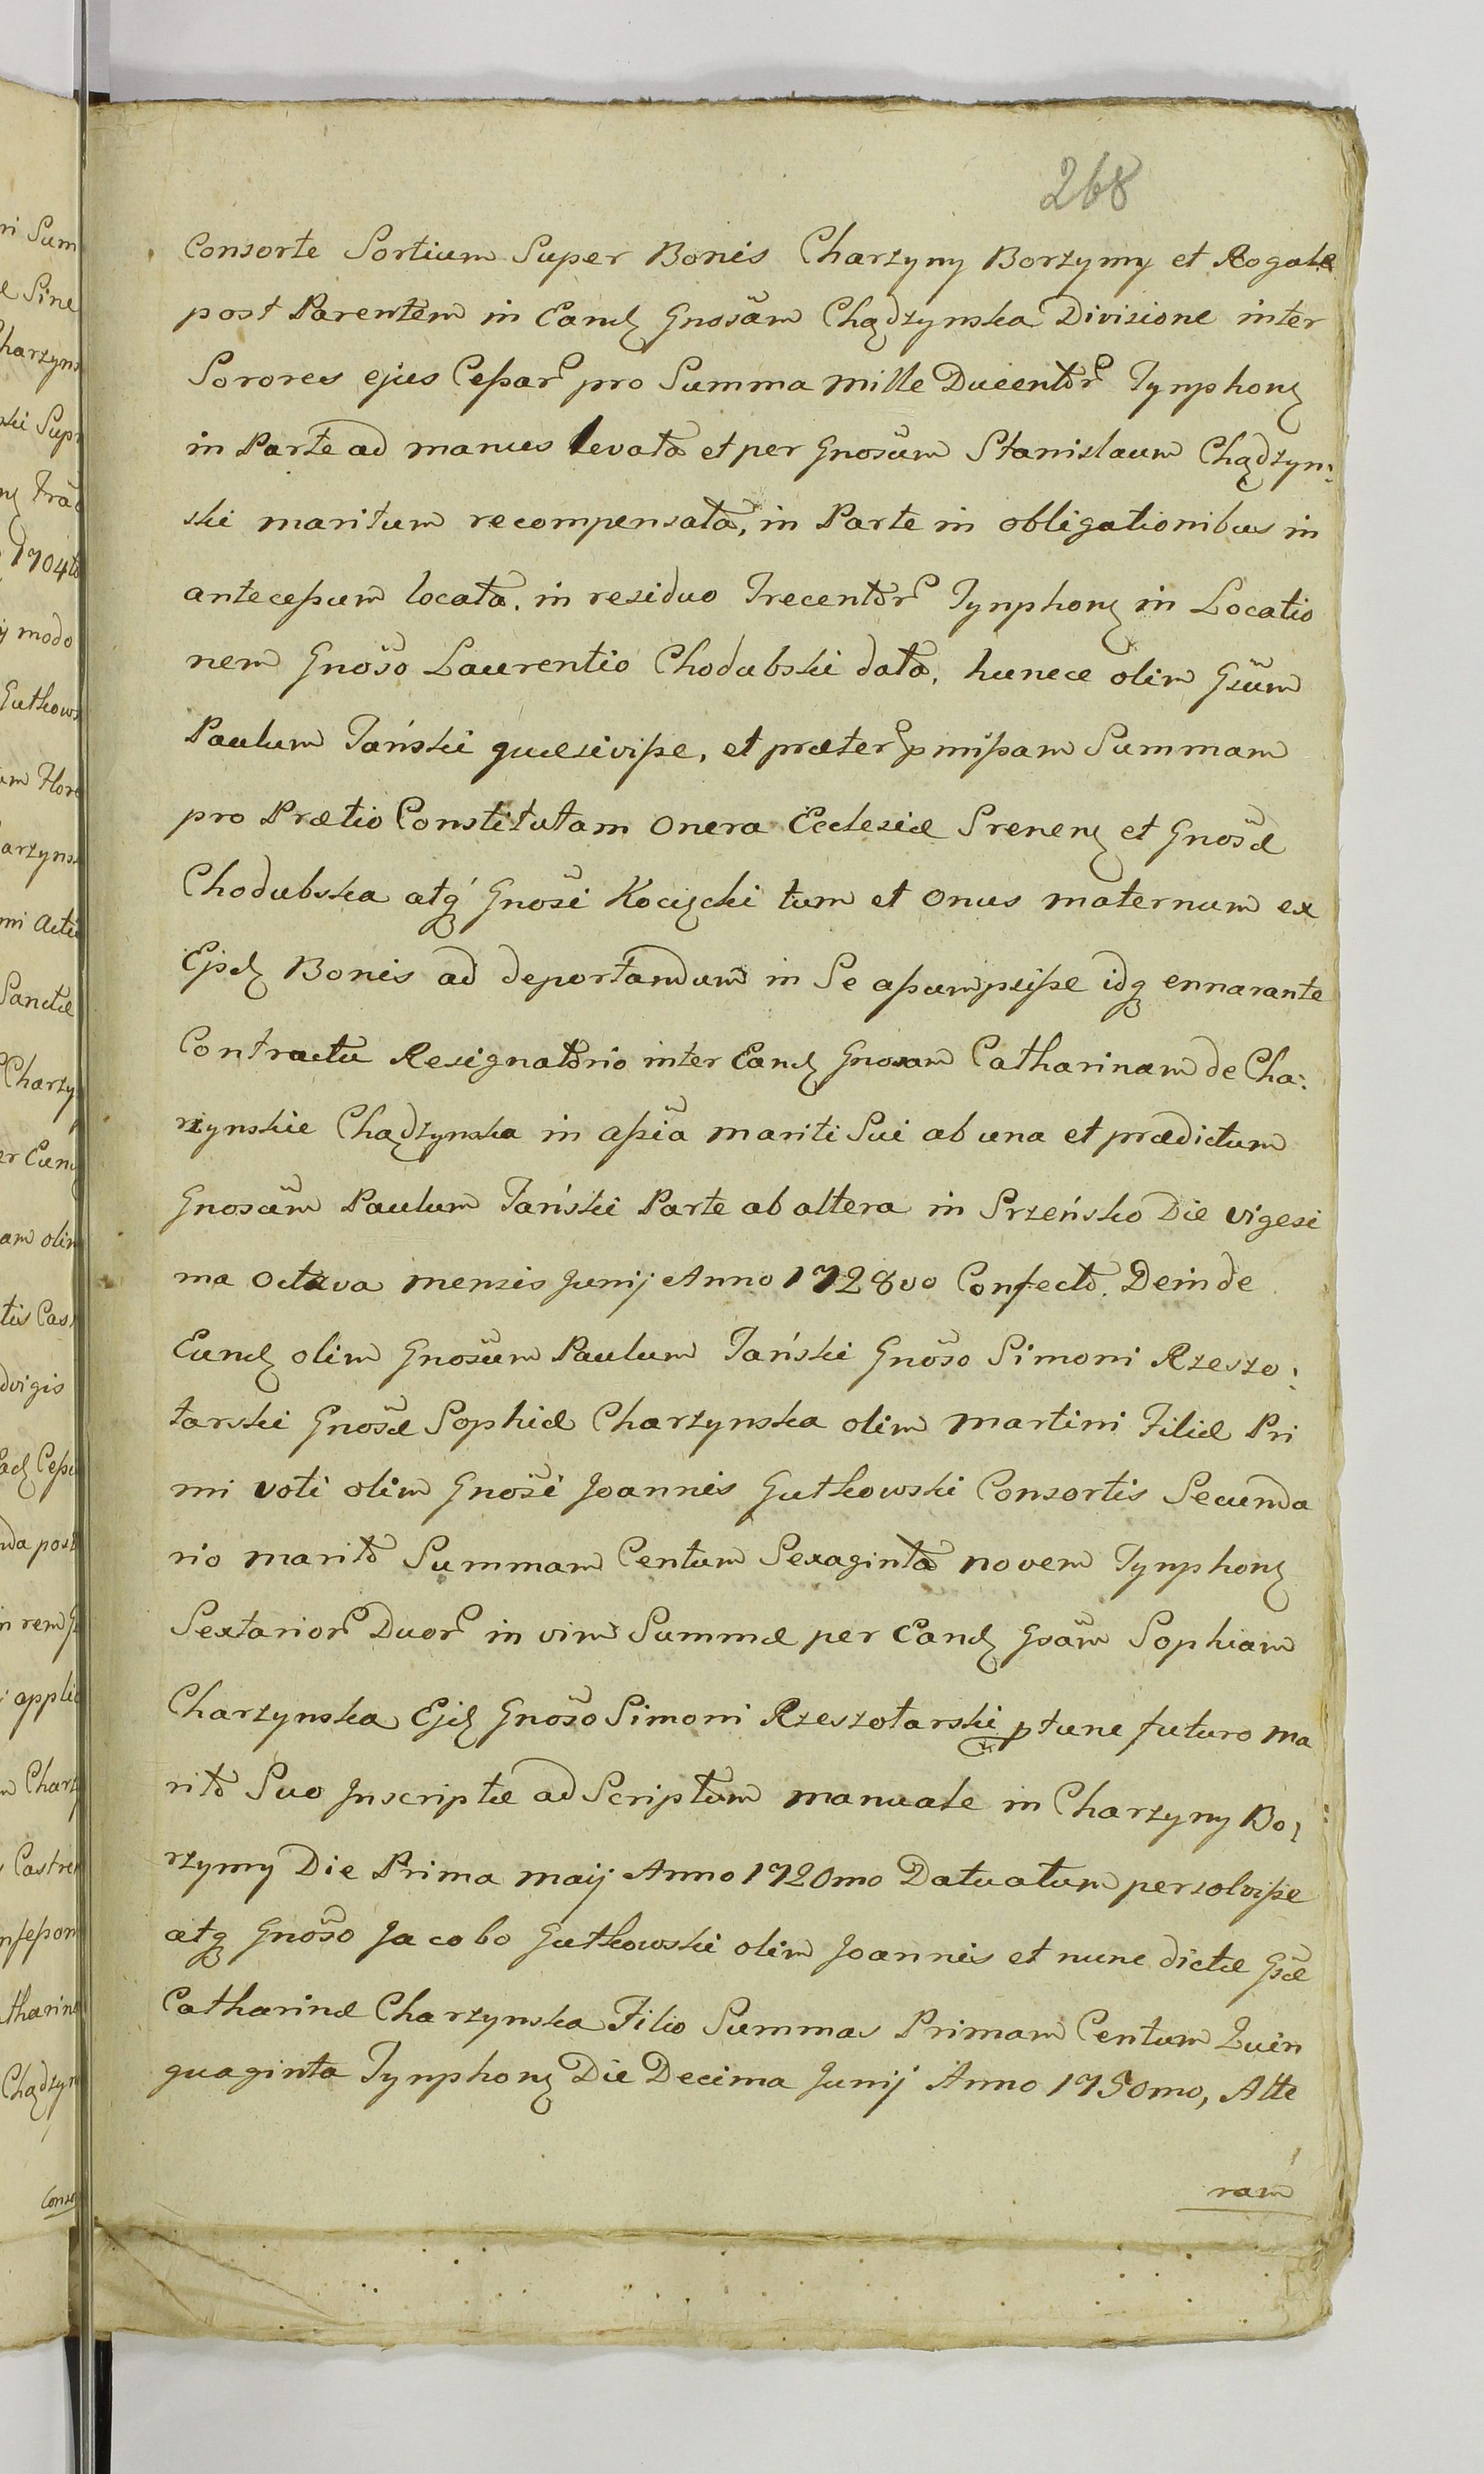 268
Consorte Sortium Super Bonis Charzyny Borzymy et Rogale
post Parentem in Eandꝫ Gnosam Chądzynska Divisione inter
Sorores ejus Cessar pro Summa mille Ducentor Tynphonꝫ
in Parte ad manus levata et per Gnosum Stanislaum Chądzyn:
ski maritum recompensata, in Parte in obligationibus in
antecessum locata, in residuo Trecentor Tynphonꝫ in Locatio
nem Gnoso Laurentio Chodubski data, huncce olim Gsum
Paulum Tański quæsivisse, et præter pmissam Summam
pro Prætio Constitutam onera Ecclesiæ Srenenꝫ et Gnosæ
Chodubska atq Gnosi Kocięcki tum et onus maternum ex
Eisdꝫ Bonis ad deportandum in Se assumpsisse idq ennarante
Contractu Resignatorio inter Eandꝫ Gnosam Catharinam de Cha:
rzynskie Chądzynska in assia mariti Sui ab una et prædictum
Gnosum Paulum Tański Parte ab altera in Srzeńsko Die vigesi
ma octava mensis Junij Anno 1728vo Confecto. Deinde
Eundꝫ olim Gnosum Paulum Tański Gnoso Simoni Rzeszo:
tarski Gnosæ Sophiæ Charzynska olim Martini Filiæ Pri
mi voti olim Gnosi Joannis Gutkowski Consortis Secunda
rio marito Summam Centum Sexaginta novem Tynphonꝫ
Sextarior Duor in vim Summæ per Eandꝫ Gsam Sophiam
Charzynska Ejdꝫ Gnoso Simoni Rzeszotarski ptunc futuro ma
rito Suo Inscriptæ ad Scriptum manuale in Charzyny Bo:
rzymy Die Prima Maij Anno 1720mo Datuatum persolvisse
atq Gnoso Jacobo Gutkowski olim Joannis et nunc dictæ Gsæ
Catharinæ Charzynska Filio Summas Primam Centum Quin
quaginta Tynphonꝫ Die Decima Junij Anno 1750mo, Alte
ram